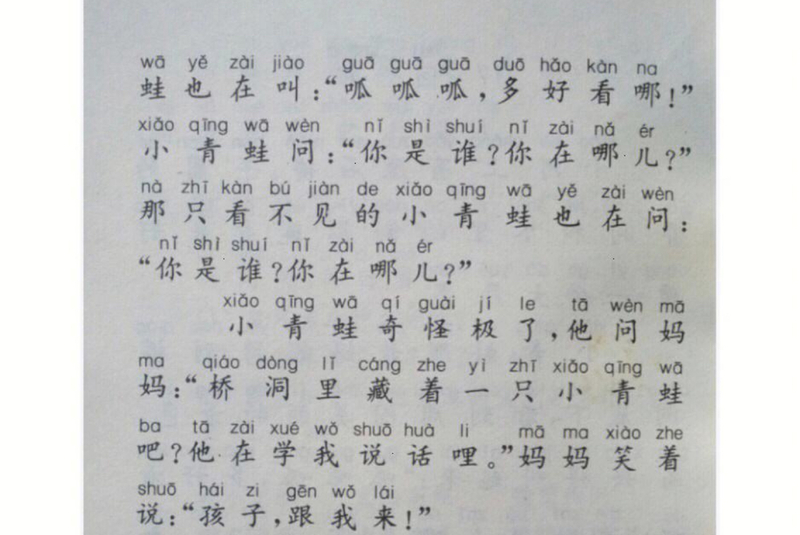 wā yě zài jiào guā guā guā duō hǎo kàn na
蛙也在叫：“呱呱呱，多好看哪！”
xiǎo qīng wā wèn nǐ shì shuí nǐ zài nǎ ér
小青蛙问：“你是谁？你在哪儿？”
nà zhī kàn bú jiàn de xiǎo qīng wā yě zài wèn
那只看不见的小青蛙也在问：
nǐ shì shuí nǐ zài nǎ ér
“你是谁？你在哪儿？”
xiǎo qīng wā qí guài jí le tā wèn mā
小青蛙奇怪极了，他问妈
ma qiáo dòng lǐ cáng zhe yì zhī xiǎo qīng wā
妈：“桥洞里藏着一只小青蛙
ba tā zài xué wǒ shuō huà li mā ma xiào zhe
吧？他在学我说话哩。”妈妈笑着
shuō hái zi gēn wǒ lái
说：“孩子，跟我来！”